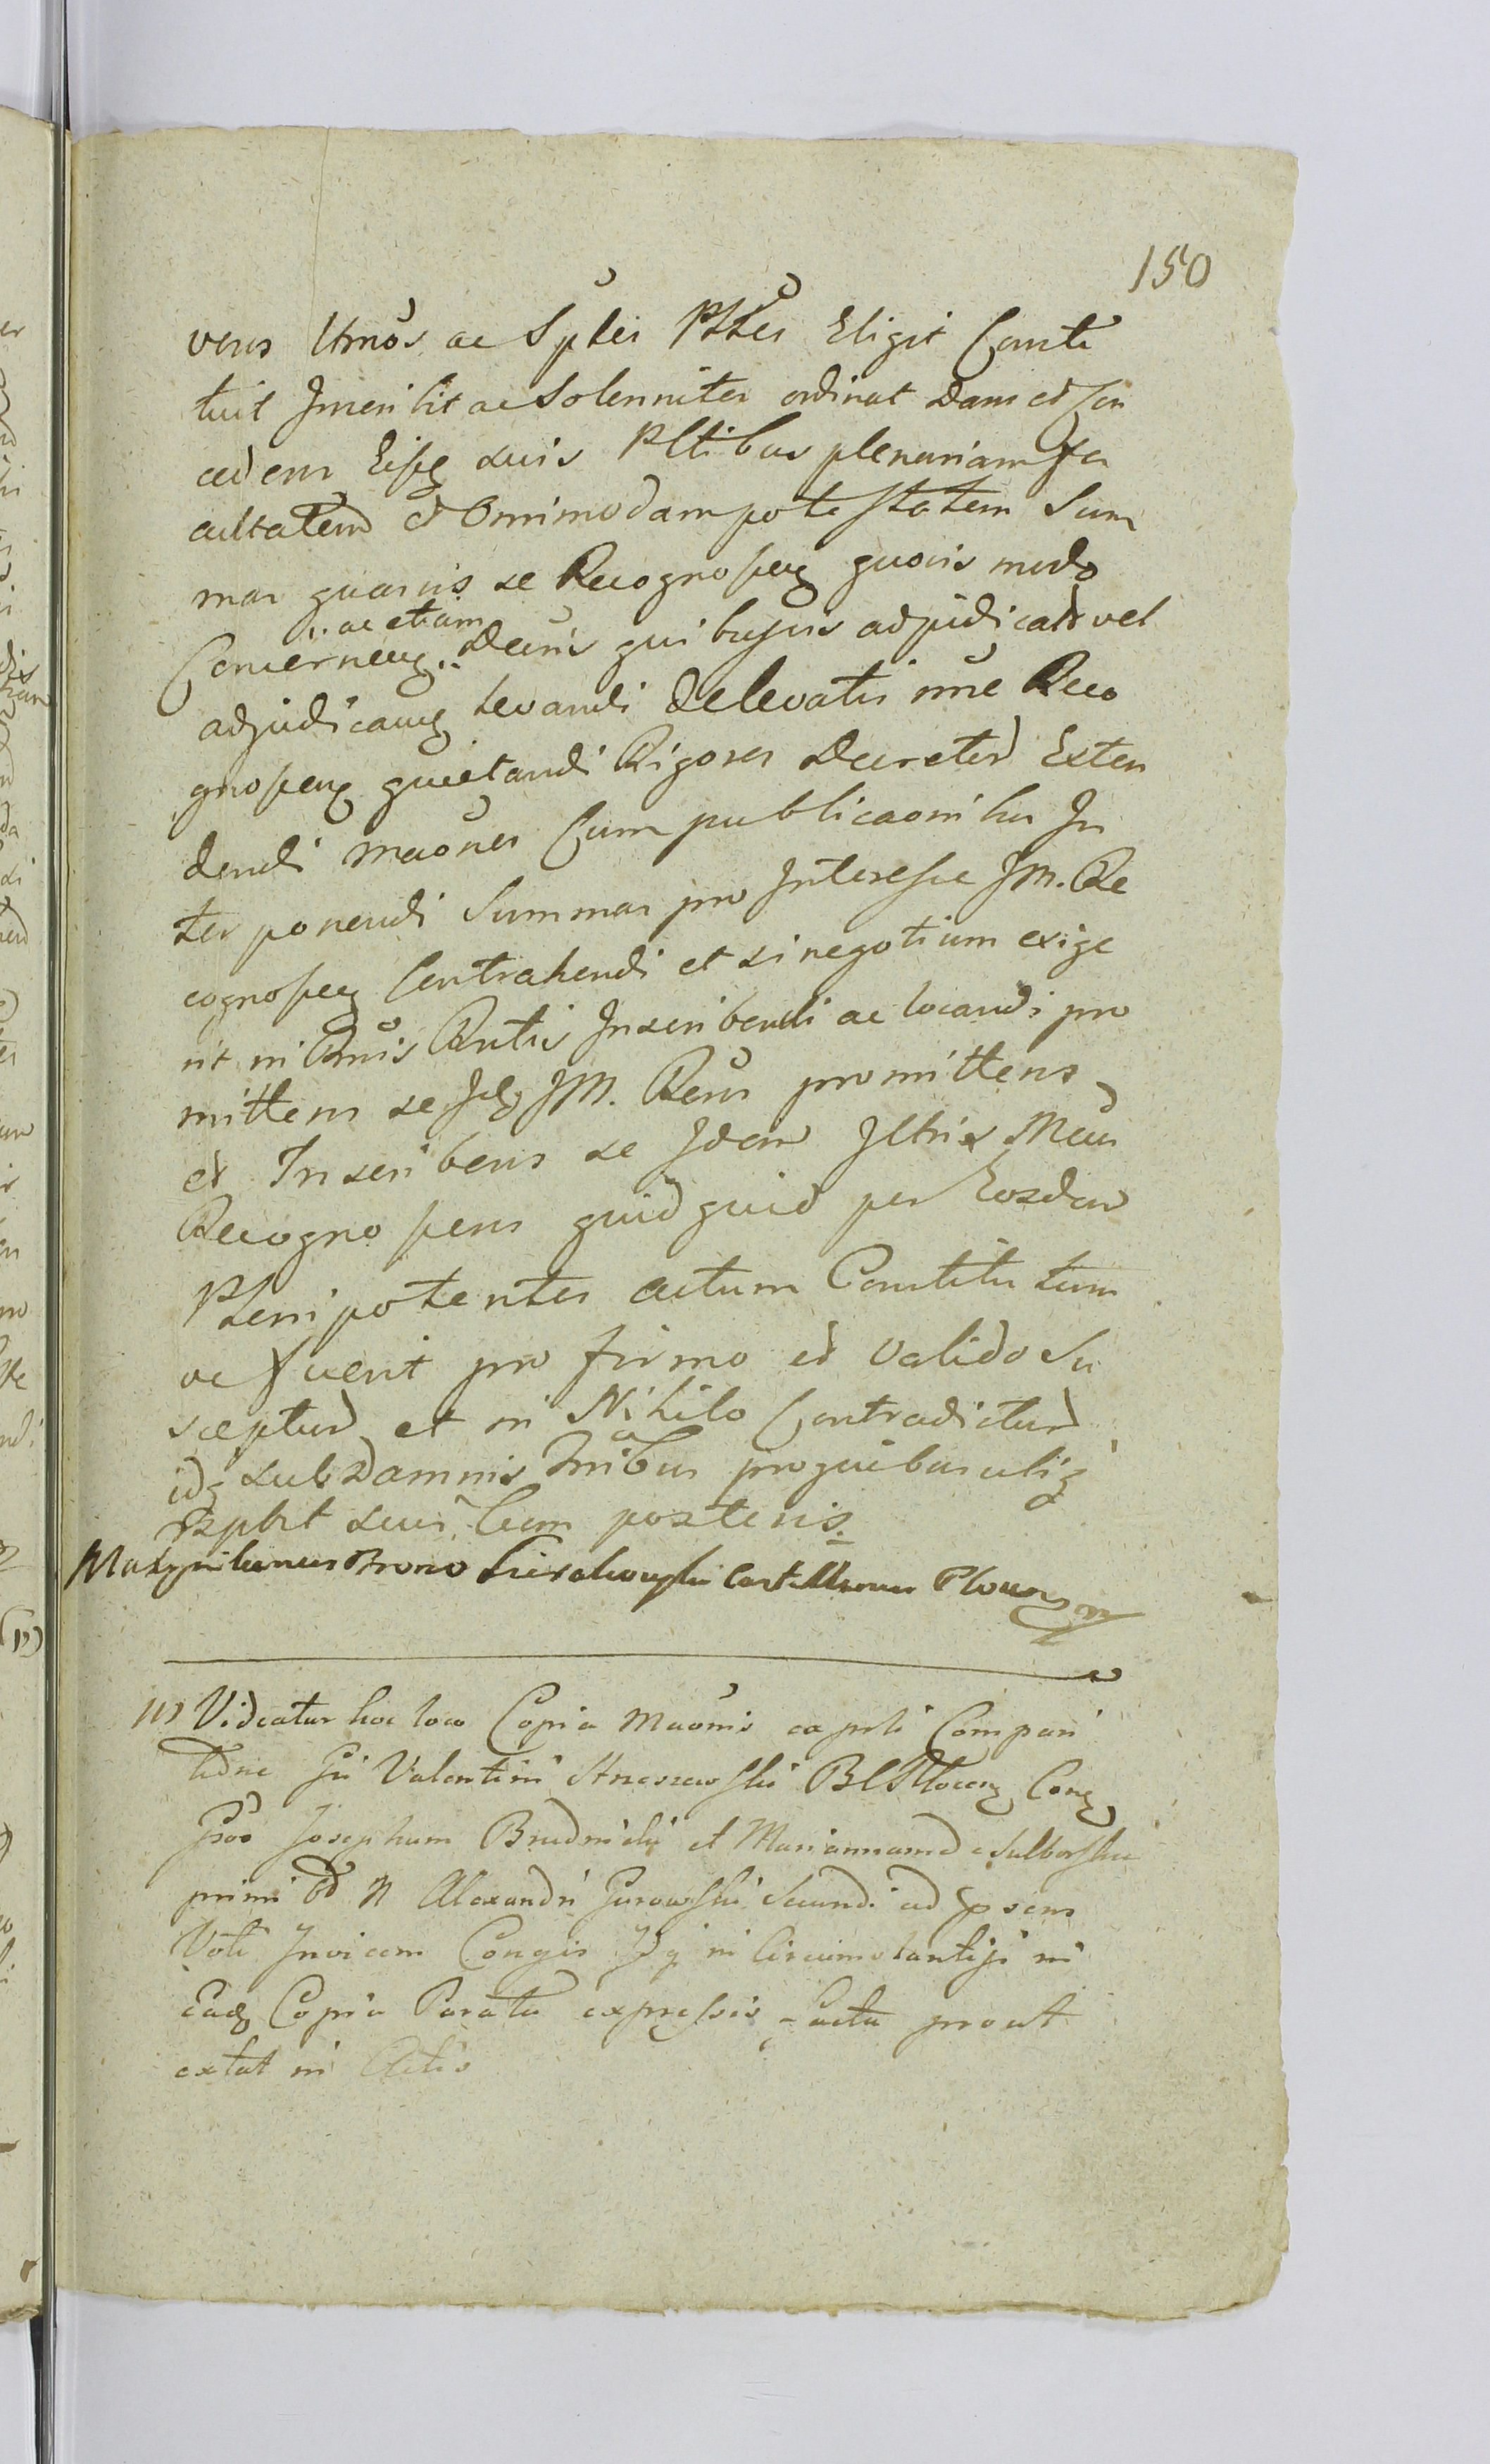 150
veros Ltmos ac Sples Pltes Eligit Consti
tuit Inscribit ac Solenniter ordinat Dans et Con
cedens Eisq suis Pltibus plenariam fa
cultatem et Omnimodam potestatem Sum
mas quasvis se Recognoscen quovis modo
,, ac etiam
Concernen ,, Decris quibusvis adjudicats vel
adjudican levandi de levatis nne Reco
gnoscen quietandi Rigores Decretor Exten
dendi maones Cum publicaonibus In
terponendi Summas pro Interesse JM. Re
cognoscen Contrahendi et si negotium exige
rit in Bnis Rntis Inscribendi ac locandi pro
mittens se Idq JM. Rens promittens
et Inscribens se Idem Illris Mcus
Recognoscens quidquid per Eosdem
Plenipotentes actum Constitutum
ve fuerit pro firmo et valido su
scepturd et in Nihilo Contradicturd
idq sub Damnis pro quibus ubiq
rspbit suis Cum posteris
Maxymilianus Sierakowski Castellanus Plocen mp
(11) Videatur hoc loco Copia Maonis capsti Compari
tione Gsi Valentini BCS Plocen Coram
Gsos Josephum Brudnicki et Mariannamd Sulborska
primi od N Alexandri Gurowski Secundi ad psens
Voti Invicem Conges Idq in Circumstantijs in
Eadq Copia Parata expressis facta prout
extat in Actis